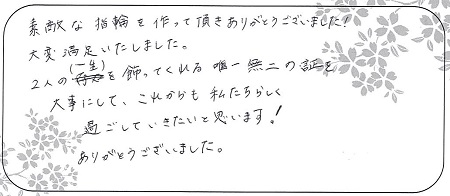 素敵な指輪を作って頂きありがとうございました!
大変満足いたしました。
(一生)
2人のを飾ってくれる唯一無二の証を
大事にして、これからも私たちらしく
過ごしていきたいと思います!
ありがとうございました。